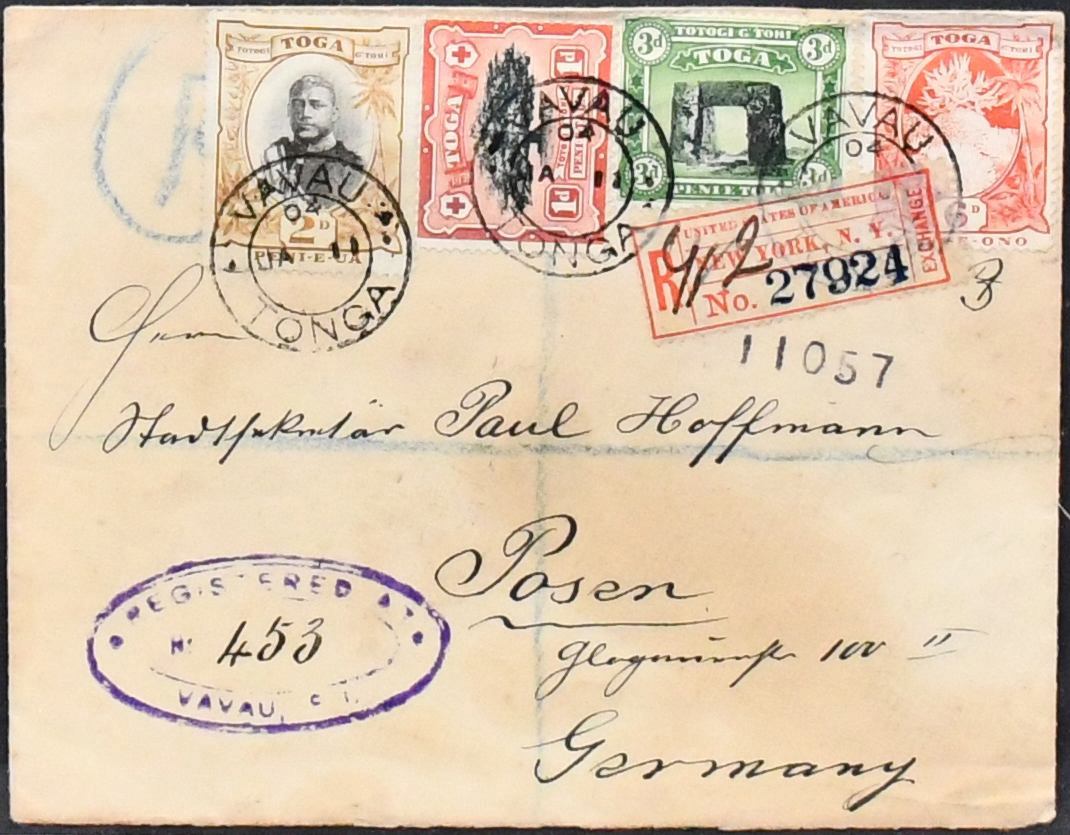 TOTOGI TOGA G TOHI
2D
PENI-E-UA
TOGA
1D
PENI
3d TOTOGI G TOHI 3d
TOGA
3d PENI E TOLU 3d
TOTOGI TOGA G TOHI
D
E-ONO
VAVAU
04
JA 11
TONGA
VAVAU
04
JA 11
TONGA
VAVAU
04
R
UNITED STATES OF AMERICA
NEW YORK, N. Y.
EXCHANGE
No. 27924
412
11057
Herrn
Stadtsekretär Paul Hoffmann
Posen
100 II
Germany
REGISTERED AT
No 453
VAVAU,